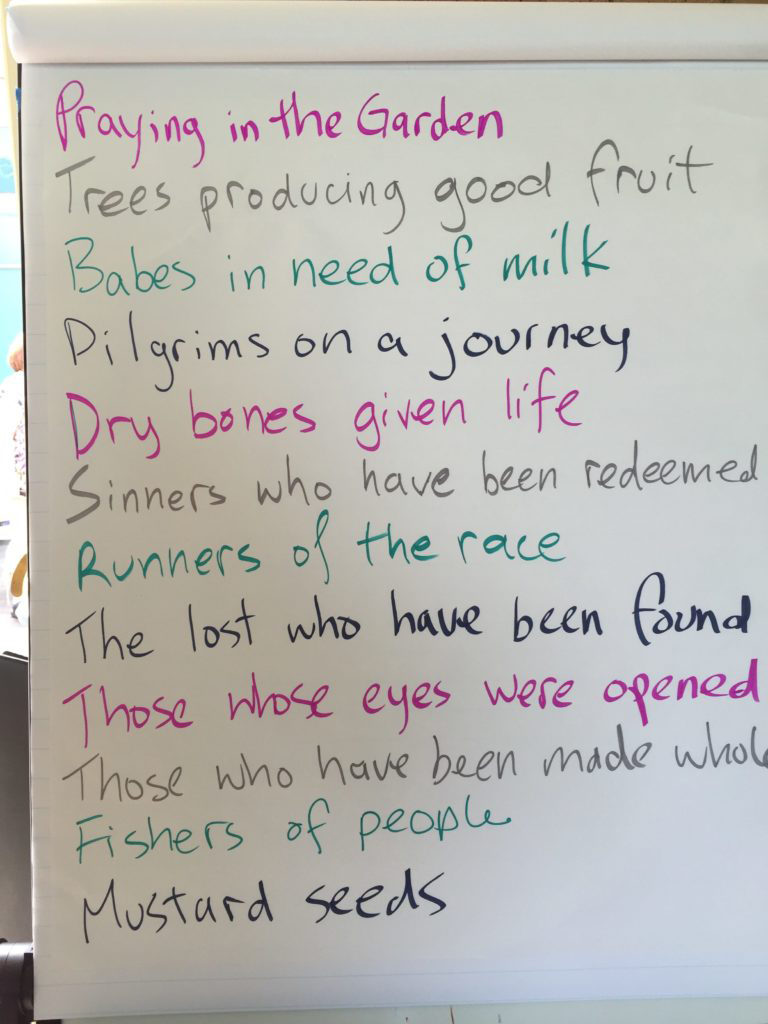 Praying in the Garden
Trees producing good fruit
Babes in need of milk
Pilgrims on a journey
Dry bones given life
Sinners who have been redeemed
Runners of the race
The lost who have been found
Those whose eyes were opened
Those who have been made whole
Fishers of people
Mustard seeds